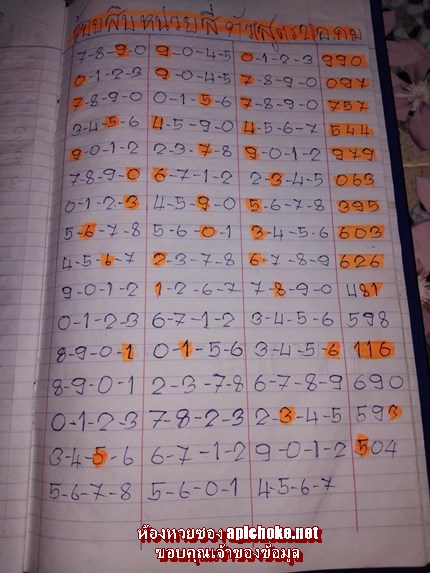 หลักสิบหน่วยสี่ตัว(สูตรบอดม
7-8-9-0 9-0-4-5 0-1-2-3 990
0-1-2-3 9-0-4-5 7-8-9-0 097
7-8-9-0 0-1-5-6 7-8-9-0 757
3-4-5-6 4-5-9-0 4-5-6-7 544
9-0-1-2 2-3-7-8 9-0-1-2 979
7-8-9-0 6-7-1-2 2-3-4-5 063
0-1-2-3 4-5-9-0 5-6-7-8 395
5-6-7-8 5-6-0-1 3-4-5-6 603
4-5-6-7 2-3-7-8 6-7-8-9 626
9-0-1-2 1-2-6-7 7-8-9-0 481
0-1-2-3 6-7-1-2 3-4-5-6 598
8-9-0-1 0-1-5-6 3-4-5-6 116
8-9-0-1 2-3-7-8 6-7-8-9 690
0-1-2-3 7-8-2-3 2-3-4-5 593
3-4-5-6 6-7-1-2 9-0-1-2 504
5-6-7-8 5-6-0-1 4-5-6-7
ห้องหวยซอง apichoke.net
ขอบคุณเจ้าของข้อมูล